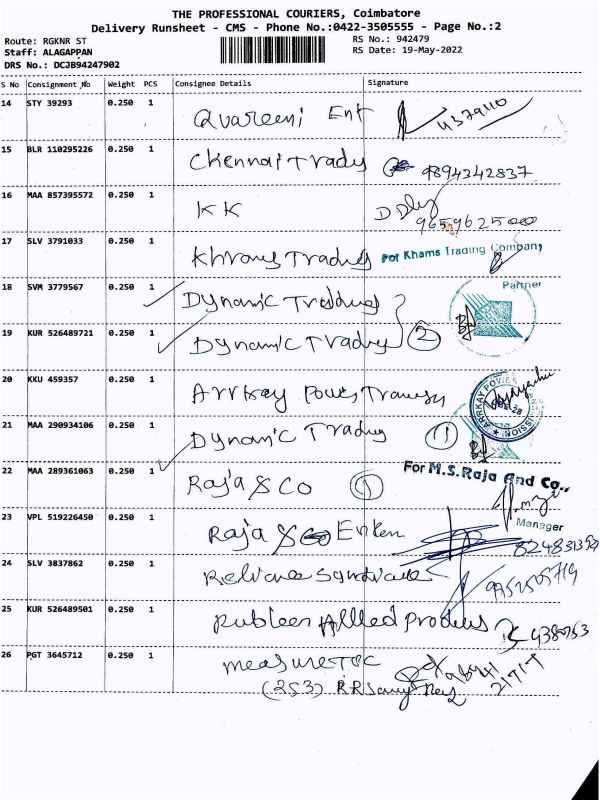 THE PROFESSIONAL COURIERS, Coimbatore
Delivery Runsheet - CMS - Phone No.:0422-3505555 - Page No.:2
Route: RGKNR ST RS No.: 942479
Staff: ALAGAPPAN RS Date: 19-May-2022
DRS No.: DCJB94247902
S No Consignment No Weight PCS Consignee Details Signature
14 STY 39293 0.250 1 Ent 4379110
15 BLR 110295226 0.250 1 Chennai Tradg 9894342837
16 MAA 857395572 0.250 1 KK 9659625000
17 SLV 3791033 0.250 1 Trading For Khams Trading Company
18 SVM 3779567 0.250 1 Dynamic Trading Partner
19 KUR 526489721 0.250 1 Dynamic Tradg 2
20 KKU 459357 0.250 1 Arrkay Power ARRKAY POWER
21 MAA 290934106 0.250 1 Dynamic Tradg
22 MAA 289361063 0.250 1 Raja & Co 1 For M.S.Raja And Co.,
Manager
23 VPL 519226450 0.250 1 Raja & Co
24 SLV 3837862 0.250 1 Reliance Syndicate
25 KUR 526489501 0.250 1 Allied Products
26 PGT 3645712 0.250 1
(253)